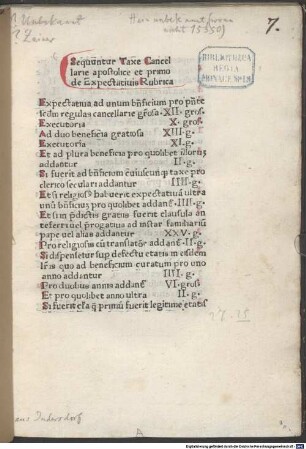 7.
BIBLIOTHECA
REGIA
MONACENSIS
Sequuntur Taxe Cancel
larie apostolice et primo
de Expectatiuis Rubrica
Expectatiua ad unum bñficium pro pñte
scdm regulas cancellarie gr̃osa XII· gros̃
Executoria X· gros̃
Ad duo beneficia gratiosa XIII· g·
Executoria XI· g·
Et ad plura beneficia pro quolibet illorum
addantur II· g·
Si fuerit ad bñficium cuiuscunqꝫ taxe pro
clerico seculari addantur IIII· g·
Et si religiosꝰ habuerit expectatiuã ultra
unũ bñficiuꝫ pro quolibet addanť IIII· g·
Et si in p̃dictis gratiis fuerit clausula an
teferri uel prorogatiua ad instar familiariũ
pape uel alias addantur XXV· g·
Pro religioso cũ translatõr addanť II· g·
Si dispensetur sup defectu etatis in eisdem
lr̃is quo ad beneficium curatum pro uno
anno addantur IIII· g·
Pro duobus annis addanť VI· gros̃
Et pro quolibet anno ultra II· g·
Si fuerit